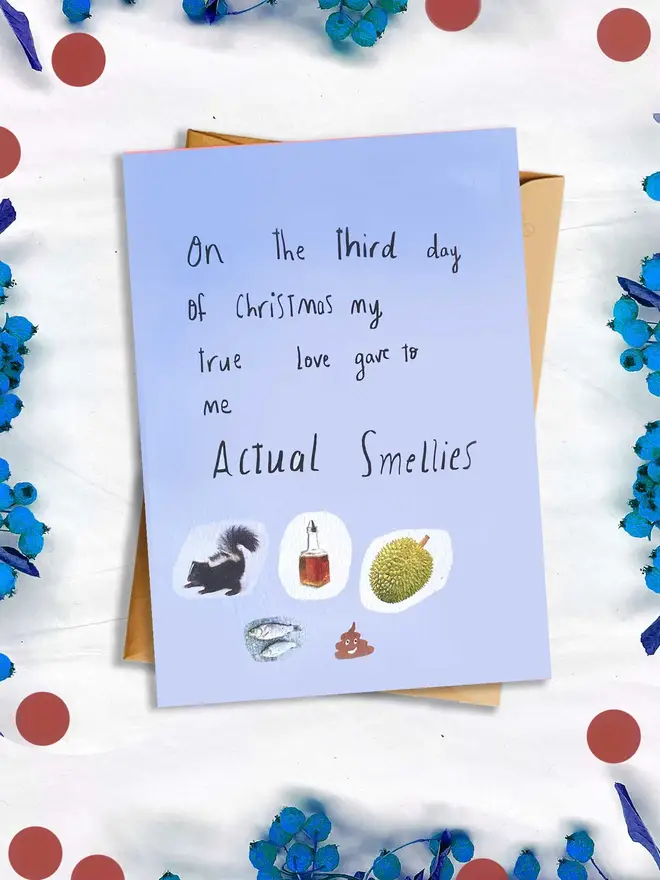 On the third day
of Christmas my
true love gave to
me
Actual Smellies